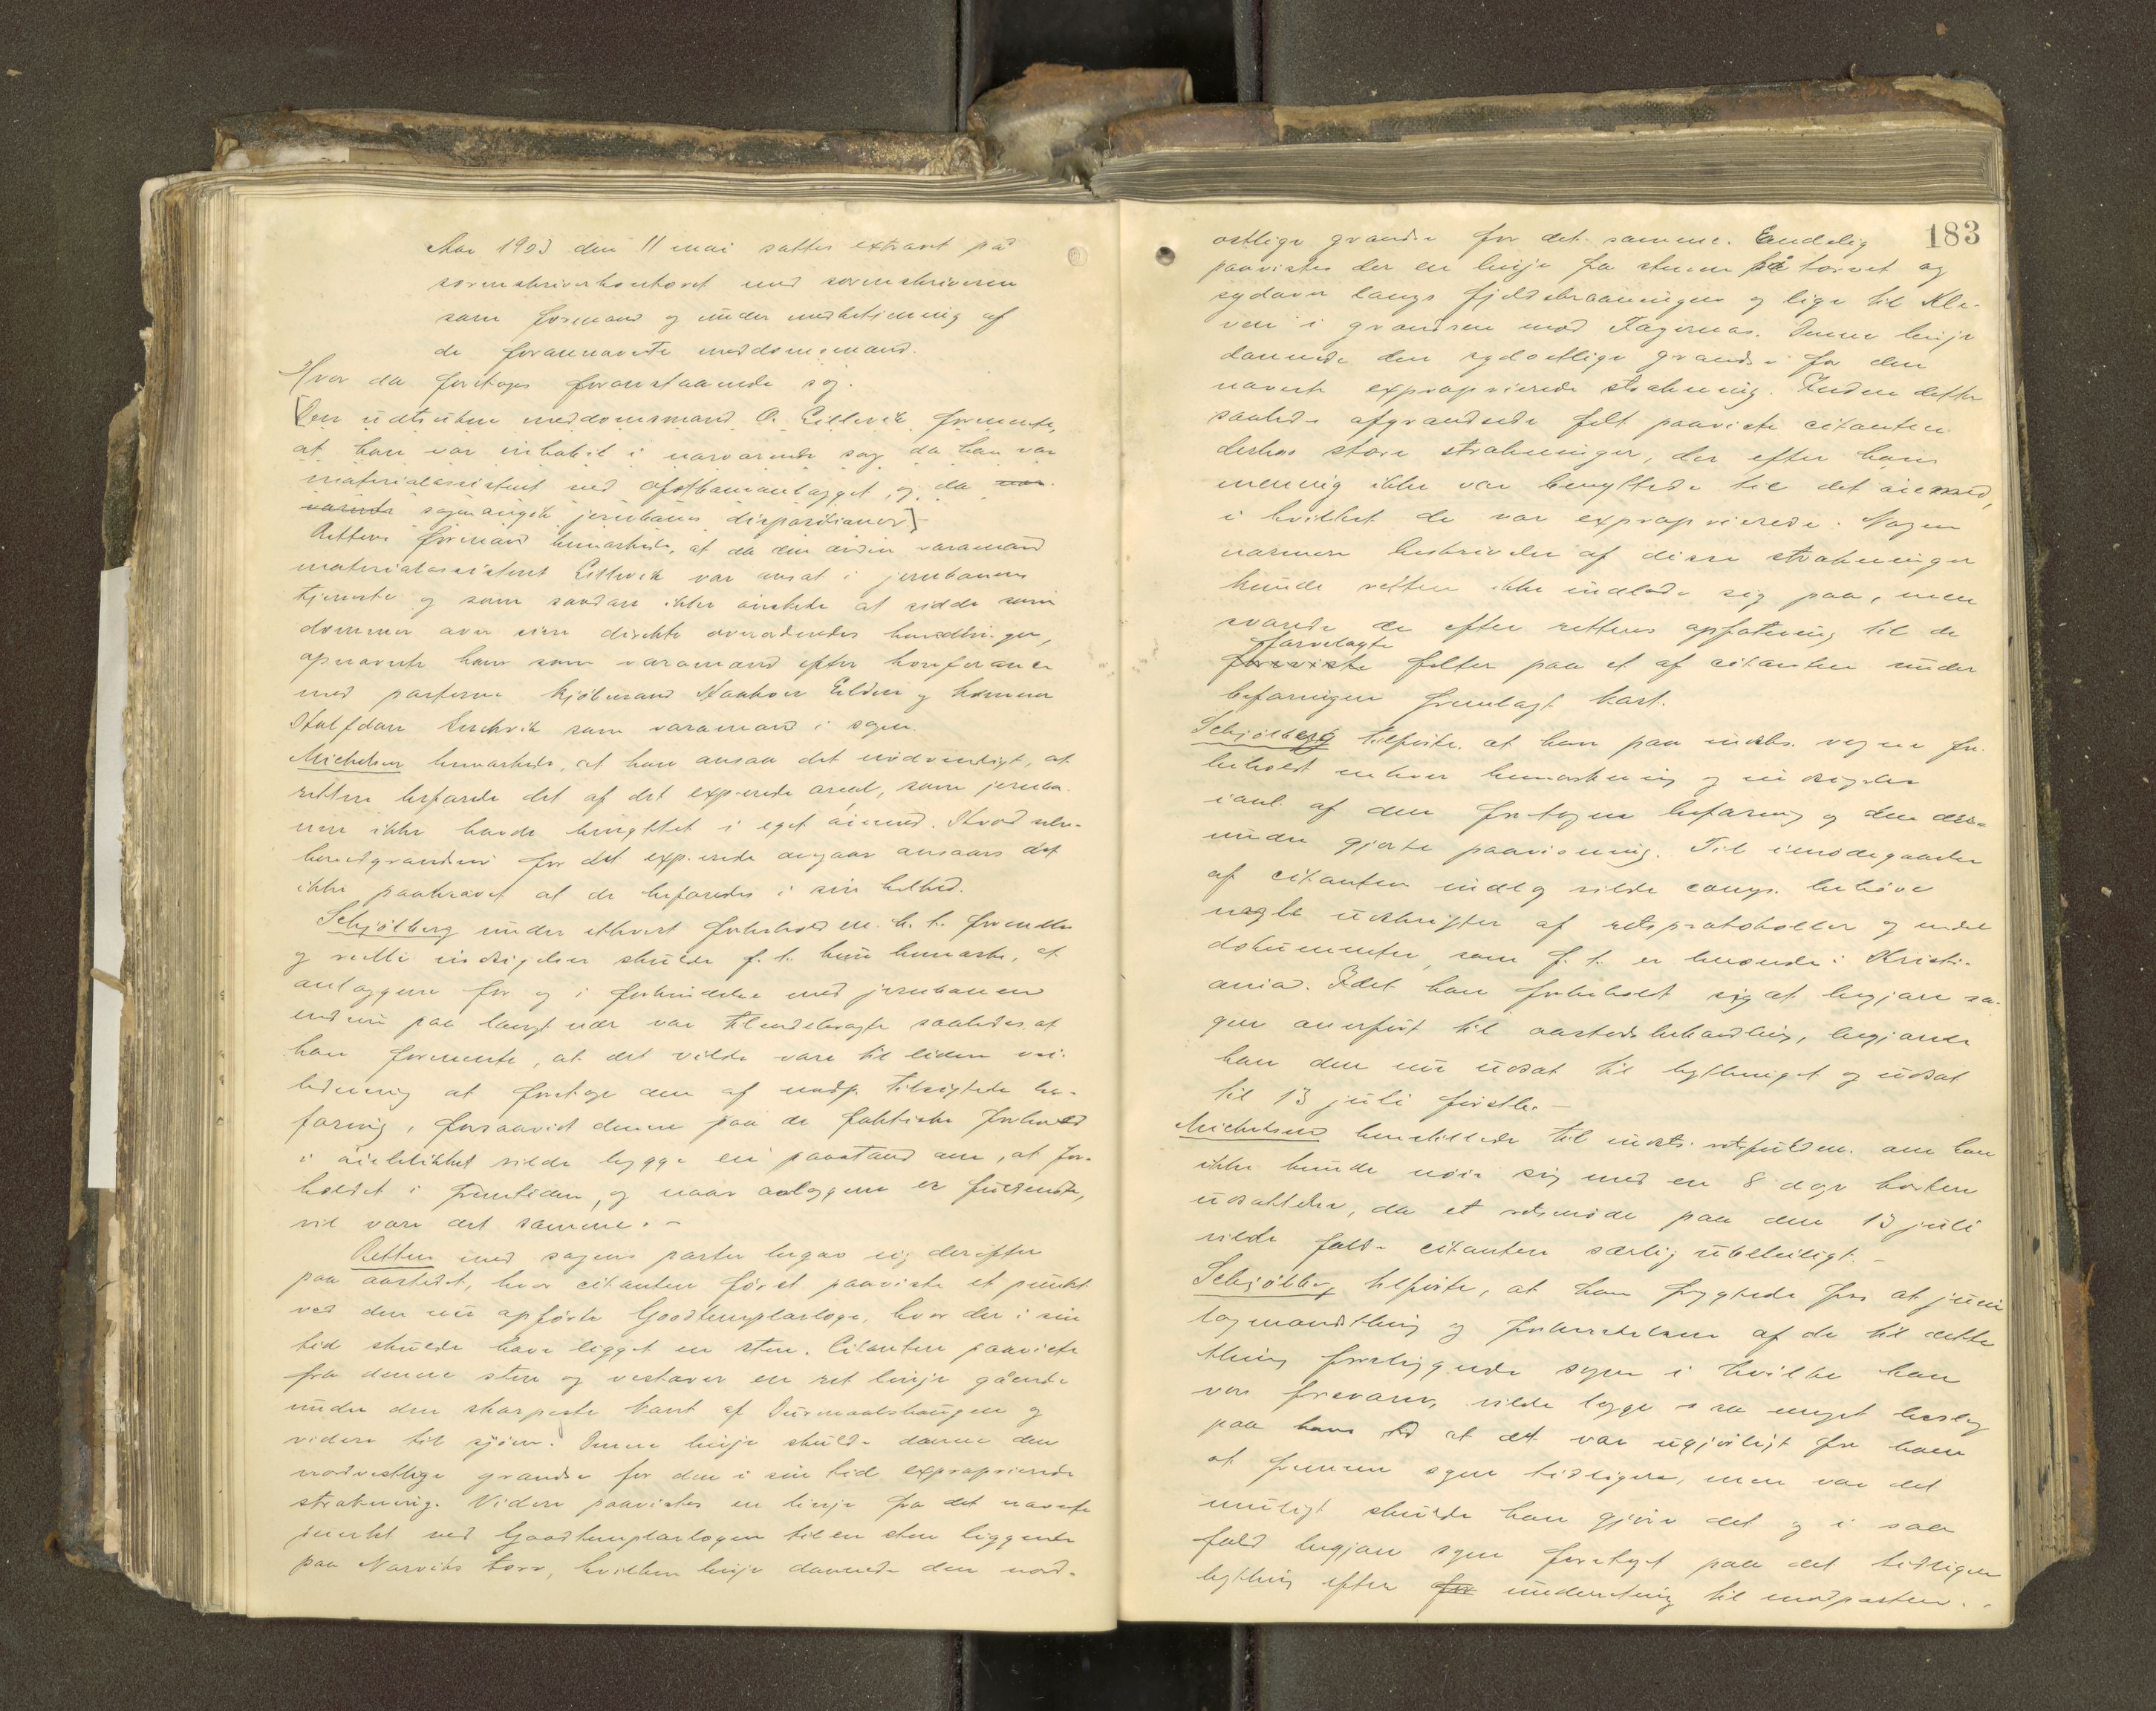 Aar 1903 den 11 mai sattes extraret på
sorenskriverkontoret med sorenskriveren
som formand og under medbetjening af
de forannævnte meddomsmænd.
Hvor da foretoges foranstaaende sag.
Den udtrukne meddomsmand O. Lillevik formente,
at han var inhabil i nærværende sag da han var
materialassistent ved Ofotbaneanlægget, og da
sagen angik jernbanens dispositioner
Rettens formand bemærkede, at da den anden varamand
materialassistent Lillevik var ansat i jernbanens
tjeneste og som saadan ikke ønskede at sidde som
dommer over sine direkte overordnedes handlinger,
opnævnte han som varamand efter konferance
med parterne kjøbmand Haakon Elden og
Halfdan som varamand i sagen.
Michelsen bemærkede, at han ansaa det nødvendigt, at
retten befarede det af det exp-erede areal, som jernba-
nen ikke havde benyttet i eget øiemed. Hvad selve
grændser for det exp.erede angaar ansaaes det
ikke paakrævet at de befaredes i sin helhed.
Schjølberg under ethvert forbehold m. h. t. formelle
og reelle indsigelser skulde f. t. kun bemærke, at
anlæggene for og i forbindelse med jernbanen
endnu paa langt nær var tilendebragte saaledes, at
han formente, at det vilde være til liden vei-
ledning at foretage den af modp. tilsigtede be-
faring, forsaavidt denne paa de faktiske forhold
i øieblikket vilde bygge en paastand om, at for-
holdet i fremtiden, og naar anlæggene er fuldendte,
vil være det samme. -
Retten med sagens parter begav sig derefter
paa aastedet, hvor citanten først paaviste et punkt
ved den nu opførte Goodtemplarloge, hvor der i sin
tid skulde have ligget en sten. Citanten paaviste
fra denne sten og vestover en ret linje gående
under den skarpeste kant af Durmaalshaugen og
videre til sjøen. Denne linje skulde danne den
nordvestlige grændse for den i sin tid exproprierede
strækning. Videre paavistes en linje fra det nævnte
punkt ved Goodtemplarlogen til en sten liggende
paa Narviks torv, hvilken linje dannede den nord-
183
østlige grændse for det samme. Endelig
paavistes der en linje fra stenen på torvet og
sydover langs fjeldskraaningen og lige til Kle-
ven i grændsen mod Fagernæs. Denne linje
dannede den sydostlige grændse for den
nævnte exproprierede strækning. Inden dette
saaledes afgrændsede felt paaviste citanten
derhos store strækninger, der efter hans
mening ikke var benyttede til det øiemed,
i hvilket de var exproprierede. Nogen
nærmere beskrivelse af disse strækninger
kunde retten ikke indlade sig paa, men
svarede de efter rettens opfatning til de
farvelagte
foreviste felter paa et af citanten under
befaringen fremlagt kart.
Schjølberg tilføiede, at han paa indst. vegne for-
beholdt enhver bemærkning og indsigelse
i anl. af den foretagne befaring og den der-
under gjorte paavisning. Til imødegaaelse
af citantens indlæg vilde comp. behøve
nogle udskrifter af retsprotokoller og endel
dokumenter, som f. t. er beroende i Kristi-
ania. Idet han forbeholdt sig at begjære sa-
gen anført til aastedsbehandling, begjærer
han den nu udsat til bytthinget og udsat
til 13 juli førstk. -
Michelsen henstillede til indst. retsfuldm. om han
ikke kunde nøie sig med en 8 dage kortere
udsættelse, da et retsmøde paa den 13 juli
vilde falde citanten særlig ubeleiligt. -
Schjølberg tilføiede, at han frygtede for at juni
lagmandsthing og forberedelsen af de til dette
thing foreliggende sager i hvilke han
var forsvarer, vilde lægge saa meget beslag
paa hans tid at det var ugjørligt for ham
at fremme sagen tidligere, men var det
muligt skulde han gjøre det og i saa
fald begjære sagen foretaget paa det tidligere
bything efter for underretning til modparten. -